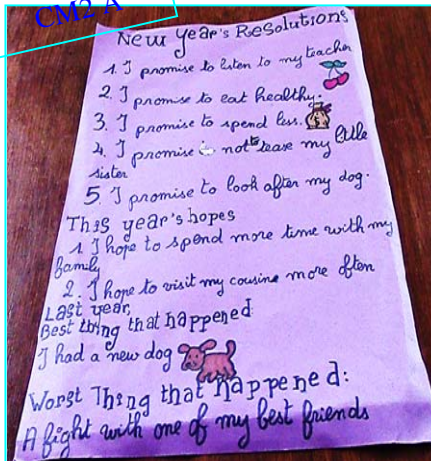 CM2 A
New Year's Resolutions
1. I promise to listen to my teacher
2. I promise to eat healthy.
3. I promise to spend less.
4. I promise not to tease my little
sister
5. I promise to look after my dog.
This year's hopes
1. I hope to spend more time with my
family
2. I hope to visit my cousins more often
Last year,
Best thing that happened
I had a new dog
Worst Thing that happened:
A fight with one of my best friends